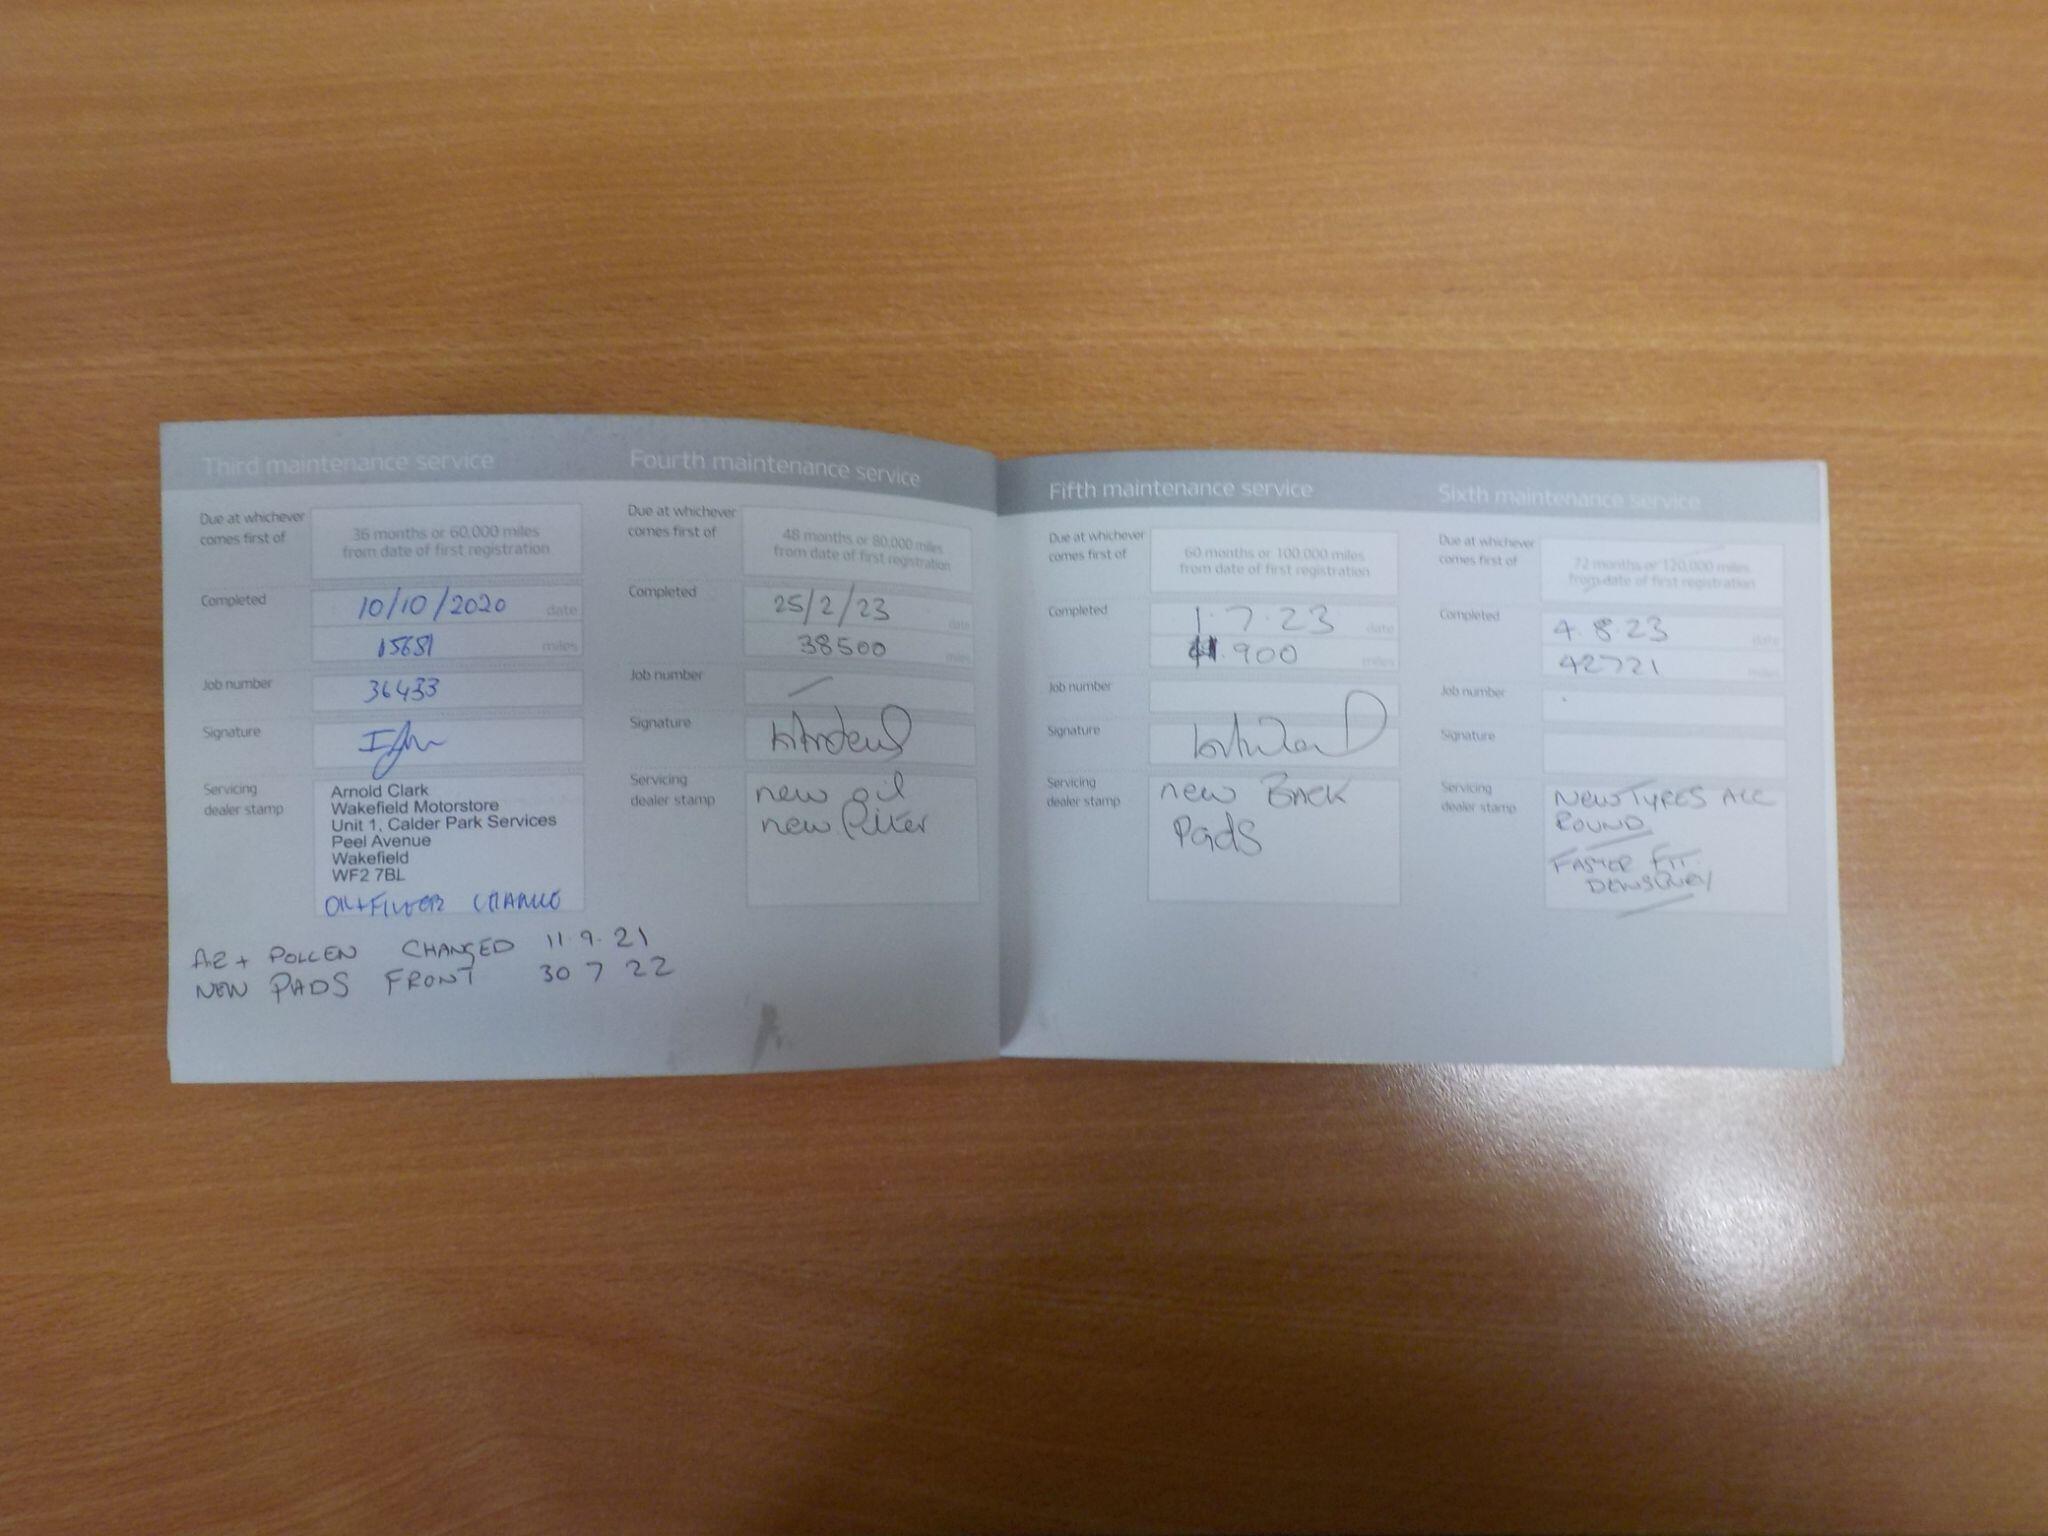 Third maintenance service
Due at whichever
comes first of
36 months or 60,000 miles
from date of first registration
Completed
10/10/2020 date
15651 miles
Job number
36433
Signature
Servicing
dealer stamp
Arnold Clark
Wakefield Motorstore
Unit 1, Calder Park Services
Peel Avenue
Wakefield
WF2 7BL
OIL+FILTER CHANGE
+ POLLEN CHANGED 11.9.21
NEW PADS FRONT 30 7 22
Fourth maintenance service
Due at whichever
comes first of
48 months or 80,000 miles
from date of first registration
Completed
25/2/23 date
38500 miles
Job number
Signature
Servicing
dealer stamp
new oil
new filter
Fifth maintenance service
Due at whichever
comes first of
60 months or 100,000 miles
from date of first registration
Completed
1.7.23 date
900 miles
Job number
Signature
Servicing
dealer stamp
new BACK
Pads
Sixth maintenance service
Due at whichever
comes first of
72 months or 120,000 miles
from date of first registration
Completed
4.8.23 date
42721 miles
Job number
Signature
Servicing
dealer stamp
NEW TYRES ALL
ROUND
FASTER FIT.
DEWSBURY